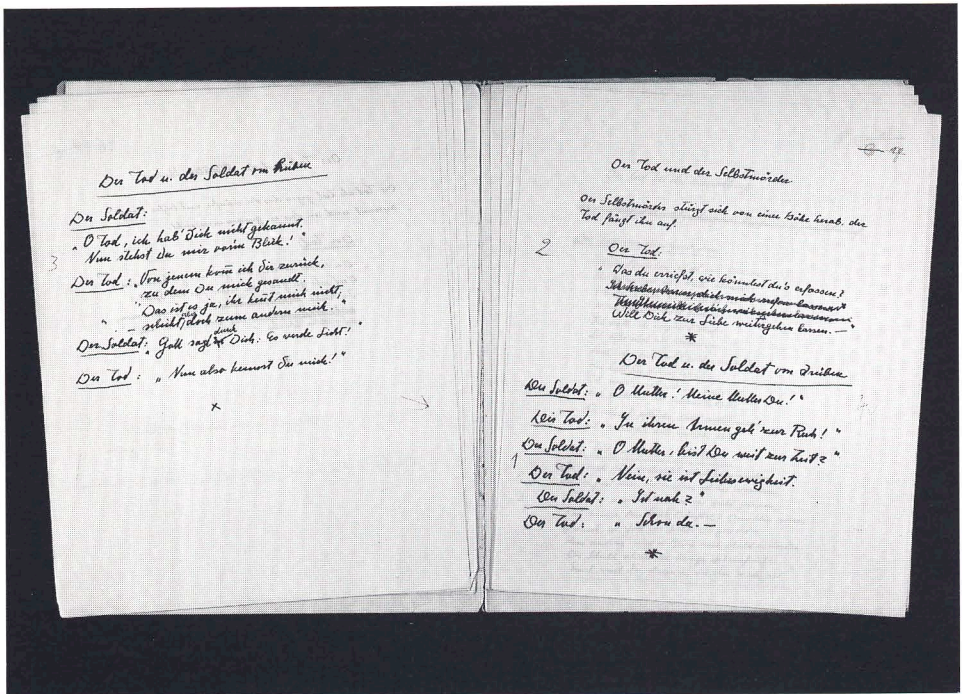 Der Tod u. der Soldat von hüben
Der Soldat:
„O Tod, ich hab' Dich nicht gekannt.
Nun stehst Du mir vorm Blick!"
3
Der Tod: „Von jenem kom̄ ich Dir zurück,
zu dem Du mich gesandt.
„Das ist es ja, ihr kennt mich nicht,
" . – zum andern mich."
Der Soldat: „Gott sagt durch Dich: Es werde Licht!"
Der Tod: „Nun also kennst Du mich!"
x
17
Der Tod und der Selbstmörder
Der Selbstmörder stürzt sich von einer Höhe herab, der
Tod fängt ihn auf.
2
Der Tod:
„Was du erriefst, wie könntest du's erfassen?
Will Dich zur Liebe weitergehen lassen. —"
*
Der Tod u. der Soldat von drüben
Der Soldat: „O Mutter! Meine Mutter Du!"
Der Tod: „In ihren Armen geh' zur Ruh!"
Der Soldat: „O Mutter, bist Du weit zur Zeit?"
1
Der Tod: „Nein, sie ist Liebesewigkeit.
Der Soldat: „Ist nah?"
Der Tod: „Schon da. —
*